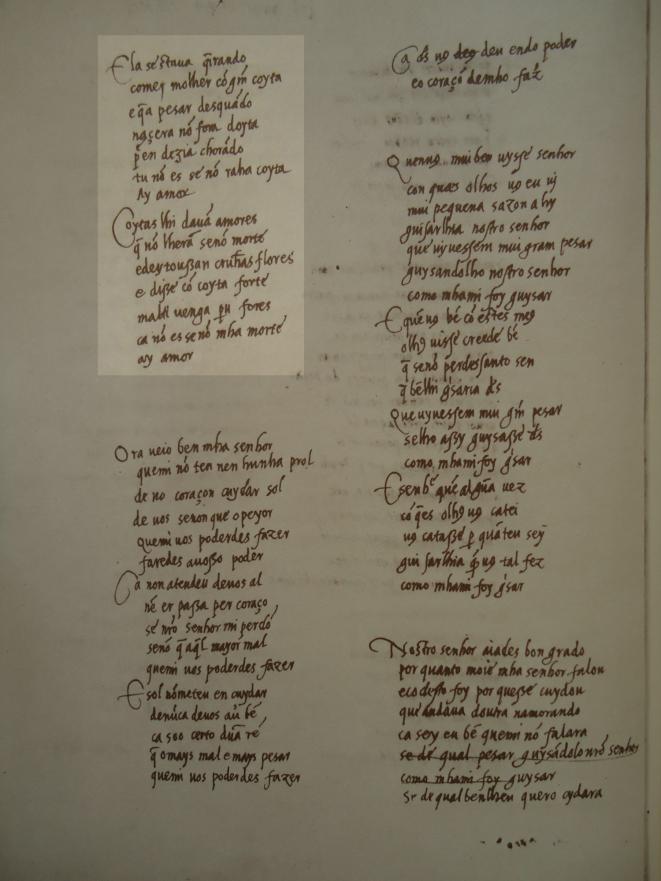 Ela seẽtaua q̃rando
comeɥ molher cõ gm̃ coyta
e q̃a pesar desquãdo
naçera nõ fora doyta
p̃en dezia chorãdo
tu nõ es se nõ raha coyta
Ay amor
Coytas lhi dauã amores
q̃ nõ lherã senõ morte
edeytoussan crunhas flores
e disse cõ coyta forte
mal ti uenga pu fores
ca nõ es senõ mha morte
ay amor
Ora ueio ben mha senhor
quemi nõ ten nen hunha prol
de no coraçon cuydar sol
de uos senon que o peyor
quemi uos poderdes fazer
faredes auosso poder
Ca non atendeu deuos al
nẽ er passa per coraço
se nr̃o senhor mi perdõ
senõ q̃aq̃l mayor mal
quemi uos poderdes fazer
E sol nõmeteu en cuydar
denũca deuos auer bẽ
ca soo certo dũa rẽ
q̃ omays mal e mays pesar
quemi uos poderdes fazer
Ca ds̃ uꝯ deu endo poder
eo coraçõ demho faz
Quenuꝯ mui ben uysse senhor
con quaes olhos uꝯ eu ui
mui pequena sazon a hy
guisarlhia nostro senhor
que uyuessem mui gram pesar
guysandolho nostro senhor
como mhami foy guysar
E quẽ uꝯ bẽ cõ estes meꝯ
olhꝯ uisse creede bẽ
q̃ senõ perdessanto sen
q̃ bẽ lhi g̃saria ds̃
Que uyuessem mui gm̃ pesar
selho assy guysasse ds̃
como mhami foy g̃sar
E senbẽ que algũa uez
cõ q̃es olhꝯ uꝯ catei
uꝯ catasse p̃ quãteu sey
gui sarlhia q̃ uꝯ tal fez
como mhami foy g̃sar
Nostro senhor aiades bon grado
por quanto moie mha senhor falou
eco desto foy por quesse cuydou
que andaua doutra namorando
ca sey eu bẽ quemi nõ falara
se dẽ qual pesar guysãdolo nr̃o senhor
como mhami foy guysar
se de qual benlheu quero cydara